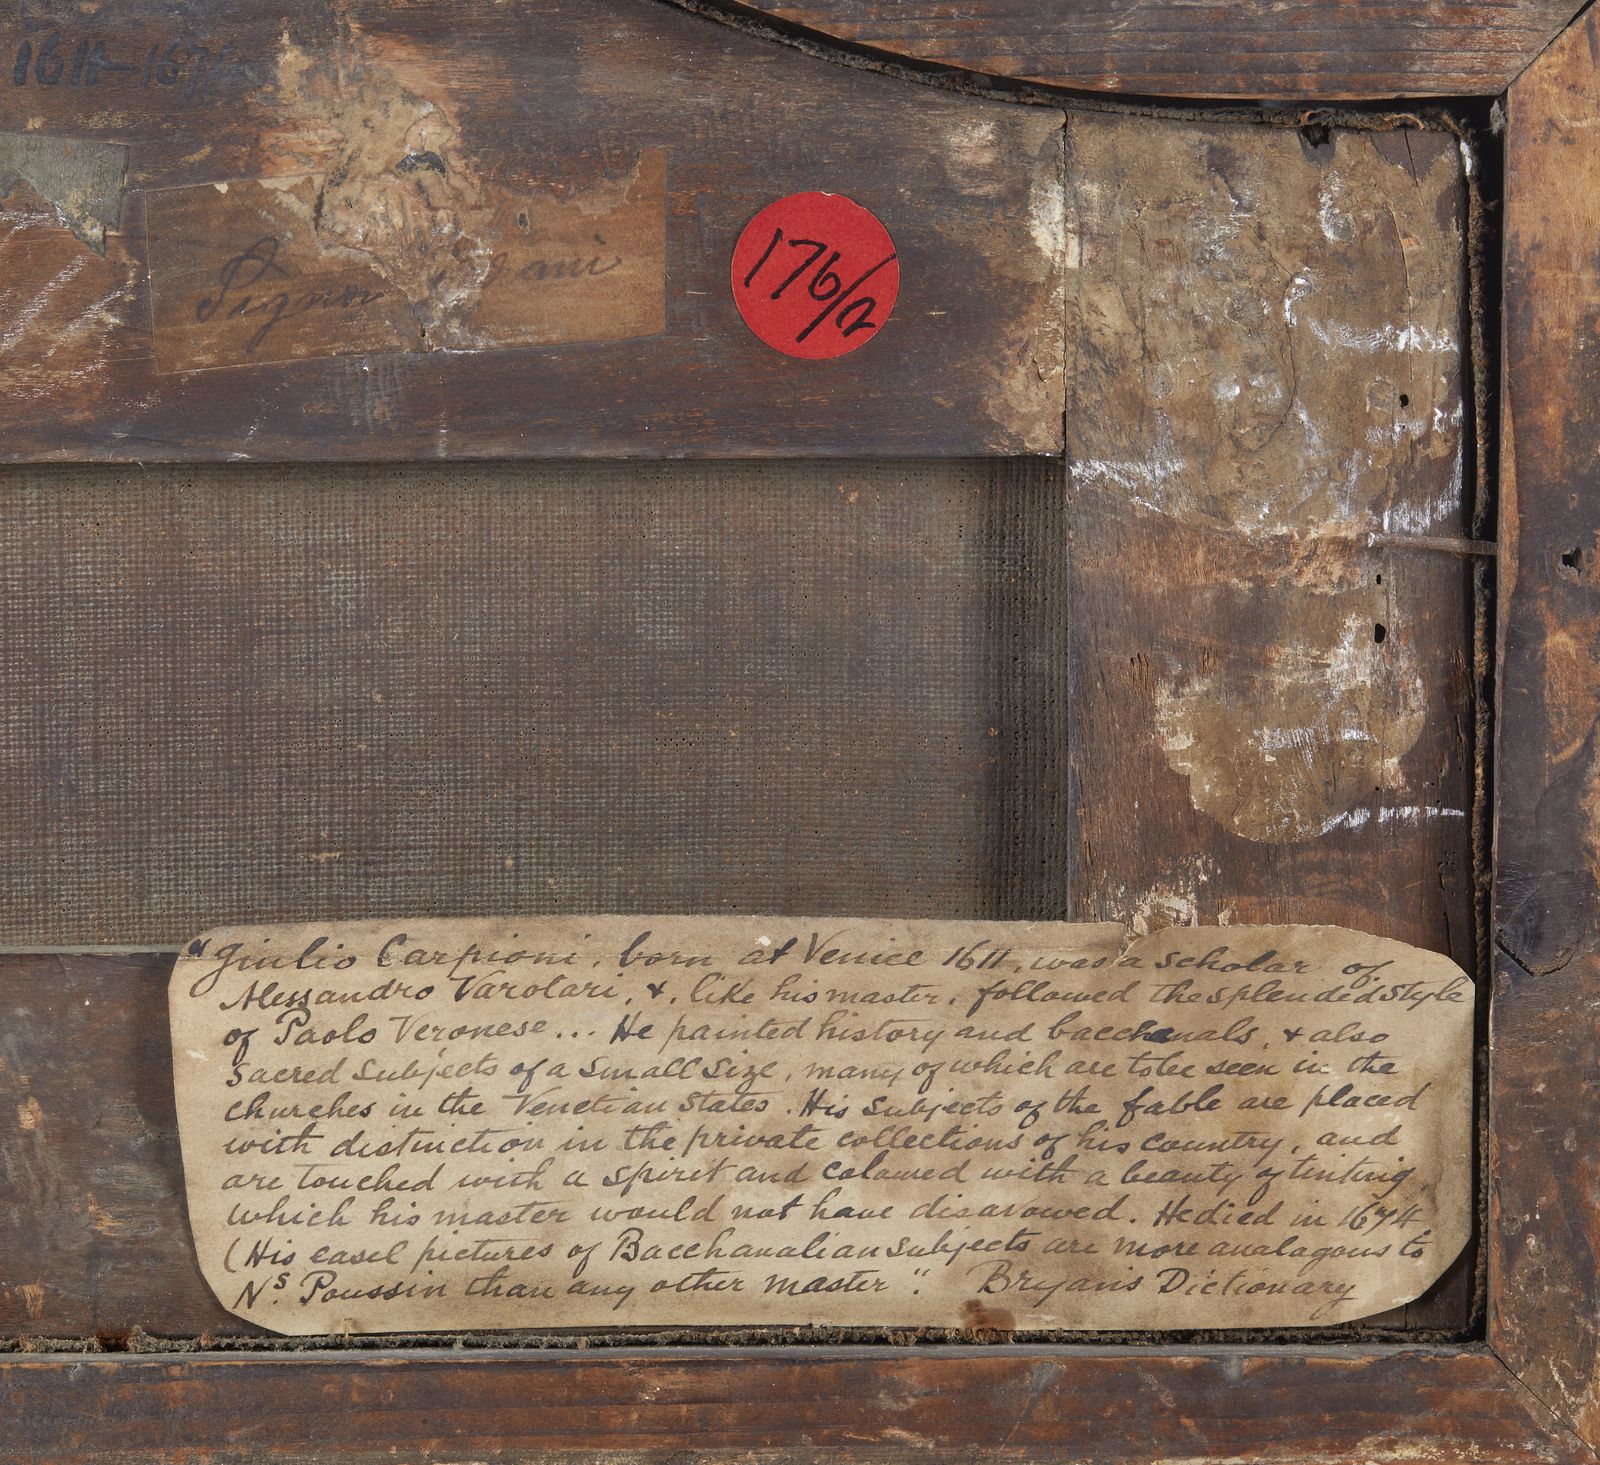 1611-167
Signor
176/2
"Giulio Carpioni, born at Venice 1611, was a scholar of
Alessandro Varotari, &, like his master, followed the splendid style
of Paolo Veronese... He painted history and bacchanals, & also
sacred subjects of a small size, many of which are to be seen in the
churches in the Venetian States. His subjects of the fable are placed
with distinction in the private collections of his country, and
are touched with a spirit and coloured with a beauty of tinting,
which his master would not have disavowed. He died in 1674.
(His easel pictures of Bacchanalian subjects are more analagous to
Nˢ. Poussin than any other master". Bryan's Dictionary